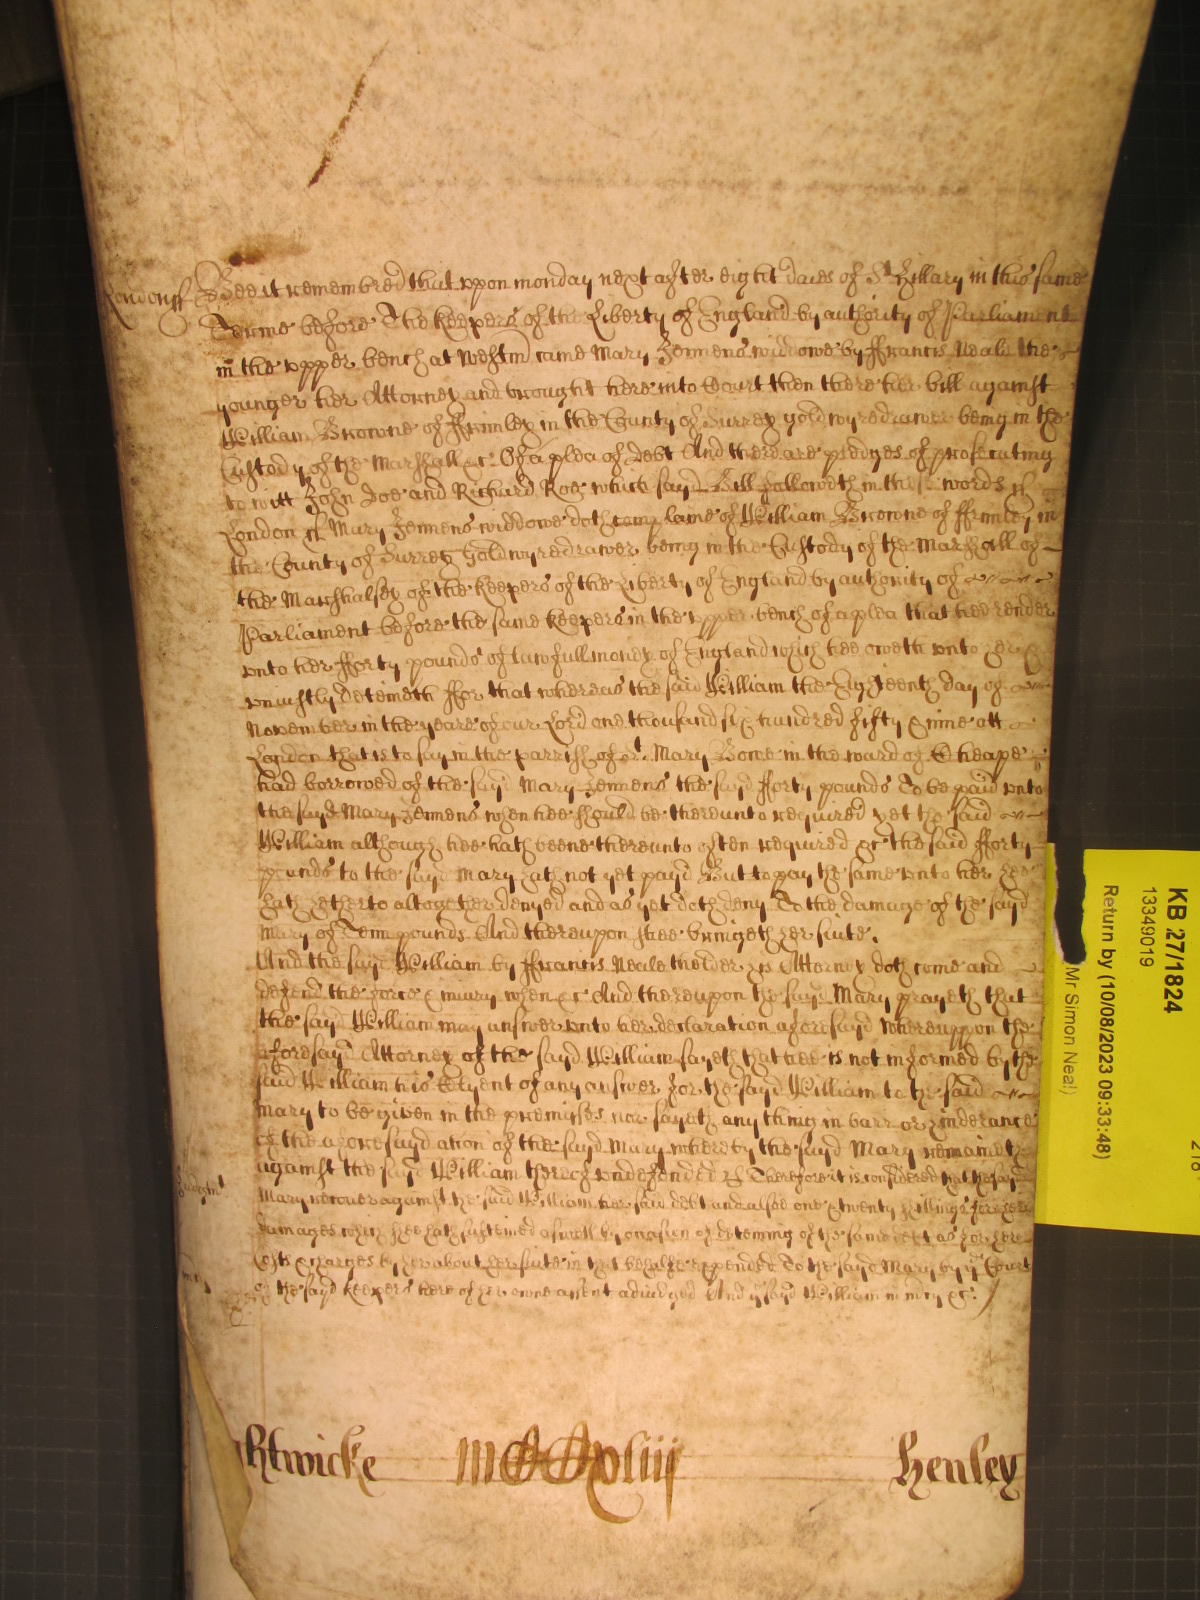 London ss Bee it remembred that uppon monday next after eight daies of St Hillary in this same
Terme before The Keepers of the Liberty of England by authority of Parliament
in the upper bench at Westm came Mary Jennens widdowe by ffrancis Neale the
younger her Attorney and brought here into Court then there her bill against
William Browne of ffrimley in the County of Surrey gold wyredrawer being in the
Custody of the Marshall &c Of a plea of debt And there are pledges of prosecuting
to witt John Doe and Richard Roe which sayd Bill followeth in these words ss
London ss Mary Jennens widdowe doth complaine of William Browne of ffrimley in
the County of Surrey Gold wyredrawer being in the Custody of the Marshall of
the Marshalsey of the Keepers of the Liberty of England by authority of
Parliament before the same keepers in the upper bench of a plea that hee render
unto her fforty pounds of lawfull money of England which hee oweth unto her &
uniustly deteineth ffor that whereas the said William the Eighteenth day of
November in the yeare of our Lord one thousand six hundred fifty & nine att
London that is to say in the parrish of St Mary Bowe in the ward of Cheape
had borrowed of the sayd Mary Jennens the sayd fforty pounds To be paid unto
the sayd Mary Jennens when hee should be thereunto required yet the said
William although hee hath beene thereunto often required &c the said fforty
pounds to the sayd Mary hath not yet payd But to pay the same unto her hee
hath hetherto altogether denyed and as yet doth deny To the damage of the sayd
Mary of Tenn pounds And thereupon shee bringeth her suite.
And the sayd William by ffrancis Neale the elder his Attorney doth come and
defend the force & iniury when &c And thereupon the sayd Mary prayeth that
the sayd William may answer unto her declaration aforesayd Whereuppon the
aforesayd Attorney of the sayd William sayeth that hee is not informed by the
said William his Clyent of any answer for the sayd William to the said
Mary to be given in the premisses nor sayeth any thing in barr or hinderance
of the aforesayd ation of the sayd Mary whereby the sayd Mary remaineth
against the sayd William thereof undefended &c Therefore it is considered that the sayd
Judgmt
Mary recover against the said William her said debt and alsoe one & twenty shillings for her
damages which shee hath susteined aswell by occasion of deteining of the same debt as for her
costs & charges by her about her suite in that behalfe expended To the sayd Mary by ye Court
of the sayd keepers here of her owne assent adiudged And ye sayd William in mercy &c.
htwicke MCCxliij Henley
KB 27/1824
13349019
Return by (10/08/2023 09:33:48)
Mr Simon Neal)